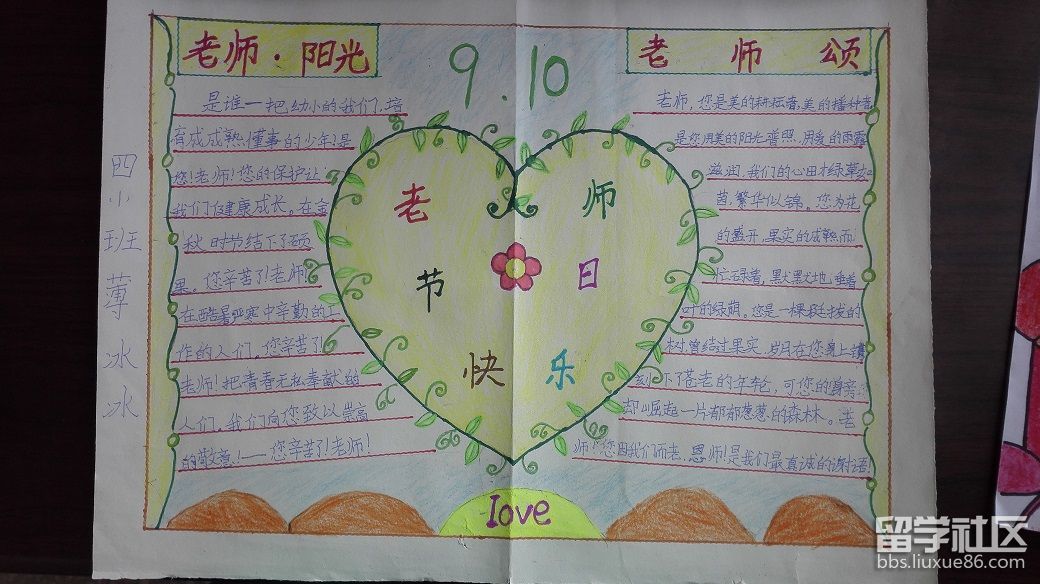 老师·阳光
是谁一把幼小的我们，培
育成成熟懂事的少年！是
您！老师！您的保护让
我们健康成长。在金
秋时节结下了硕
果。您辛苦了！老师！
在酷暑严寒中辛勤的工
作的人们。您辛苦了！
老师！把青春无私奉献给
人们。我们向您致以崇高
的敬意！——您辛苦了！老师！
9.10
老师
节日
快乐
love
老师颂
老师，您是美的耕耘者，美的播种者
是您用美的阳光普照，用爱的雨露
滋润，我们的心田才绿草如
茵，繁华似锦。您为花
的盛开，果实的成熟而
忙碌着，默默默地垂着
叶的绿荫。您是一棵挺拔的
树曾结过果实，岁月在您身上镌
刻下了苍老的年轮，可您的身旁
却崛起一片郁郁葱葱的森林。老
师！您因我们而老，恩师！是我们最真诚的谢语！
四小班薄冰冰
留学社区
bbs.liuxue86.com